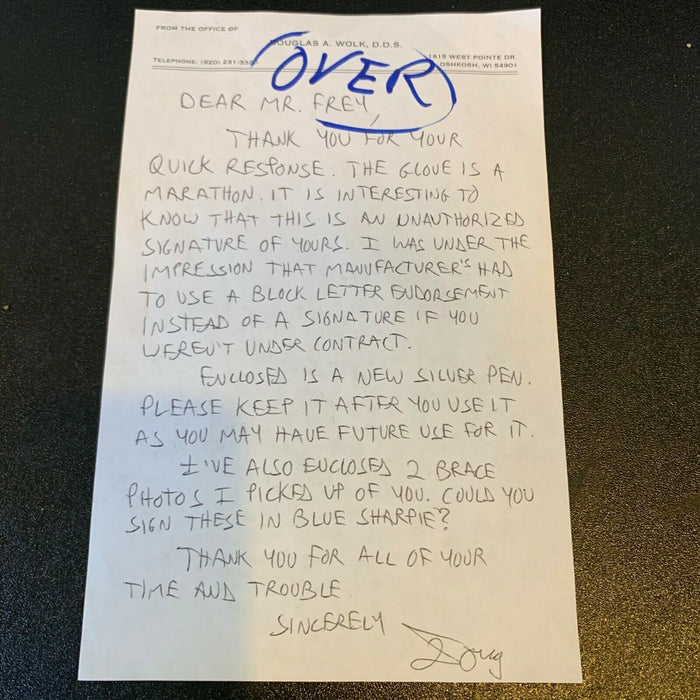 FROM THE OFFICE OF
DOUGLAS A. WOLK, D.D.S.
TELEPHONE: (920) 231-3320
1815 WEST POINTE DR.
OSHKOSH, WI 54901
OVER
DEAR MR. FREY,
THANK YOU FOR YOUR
QUICK RESPONSE. THE GLOVE IS A
MARATHON. IT IS INTERESTING TO
KNOW THAT THIS IS AN UNAUTHORIZED
SIGNATURE OF YOURS. I WAS UNDER THE
IMPRESSION THAT MANUFACTURER'S HAD
TO USE A BLOCK LETTER ENDORSEMENT
INSTEAD OF A SIGNATURE IF YOU
WEREN'T UNDER CONTRACT.
ENCLOSED IS A NEW SILVER PEN.
PLEASE KEEP IT AFTER YOU USE IT
AS YOU MAY HAVE FUTURE USE FOR IT.
I'VE ALSO ENCLOSED 2 BRACE
PHOTOS I PICKED UP OF YOU. COULD YOU
SIGN THESE IN BLUE SHARPIE?
THANK YOU FOR ALL OF YOUR
TIME AND TROUBLE.
SINCERELY
Doug